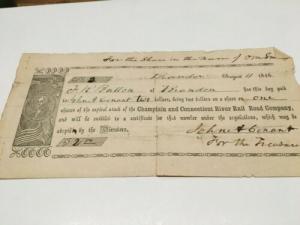 For the Share in the Name of
$ 2 Brandon August 11 1846.
of Brandon has this day paid
to John A Conant two dollars, being two dollars on a share on one
shares of the capital stock of the Champlain and Connecticut River Rail Road Company,
and will be entitled to a certificate for that number under the regulations, which may be
adopted by the Directors. John A Conant
$ 2.00 For the Treasurer